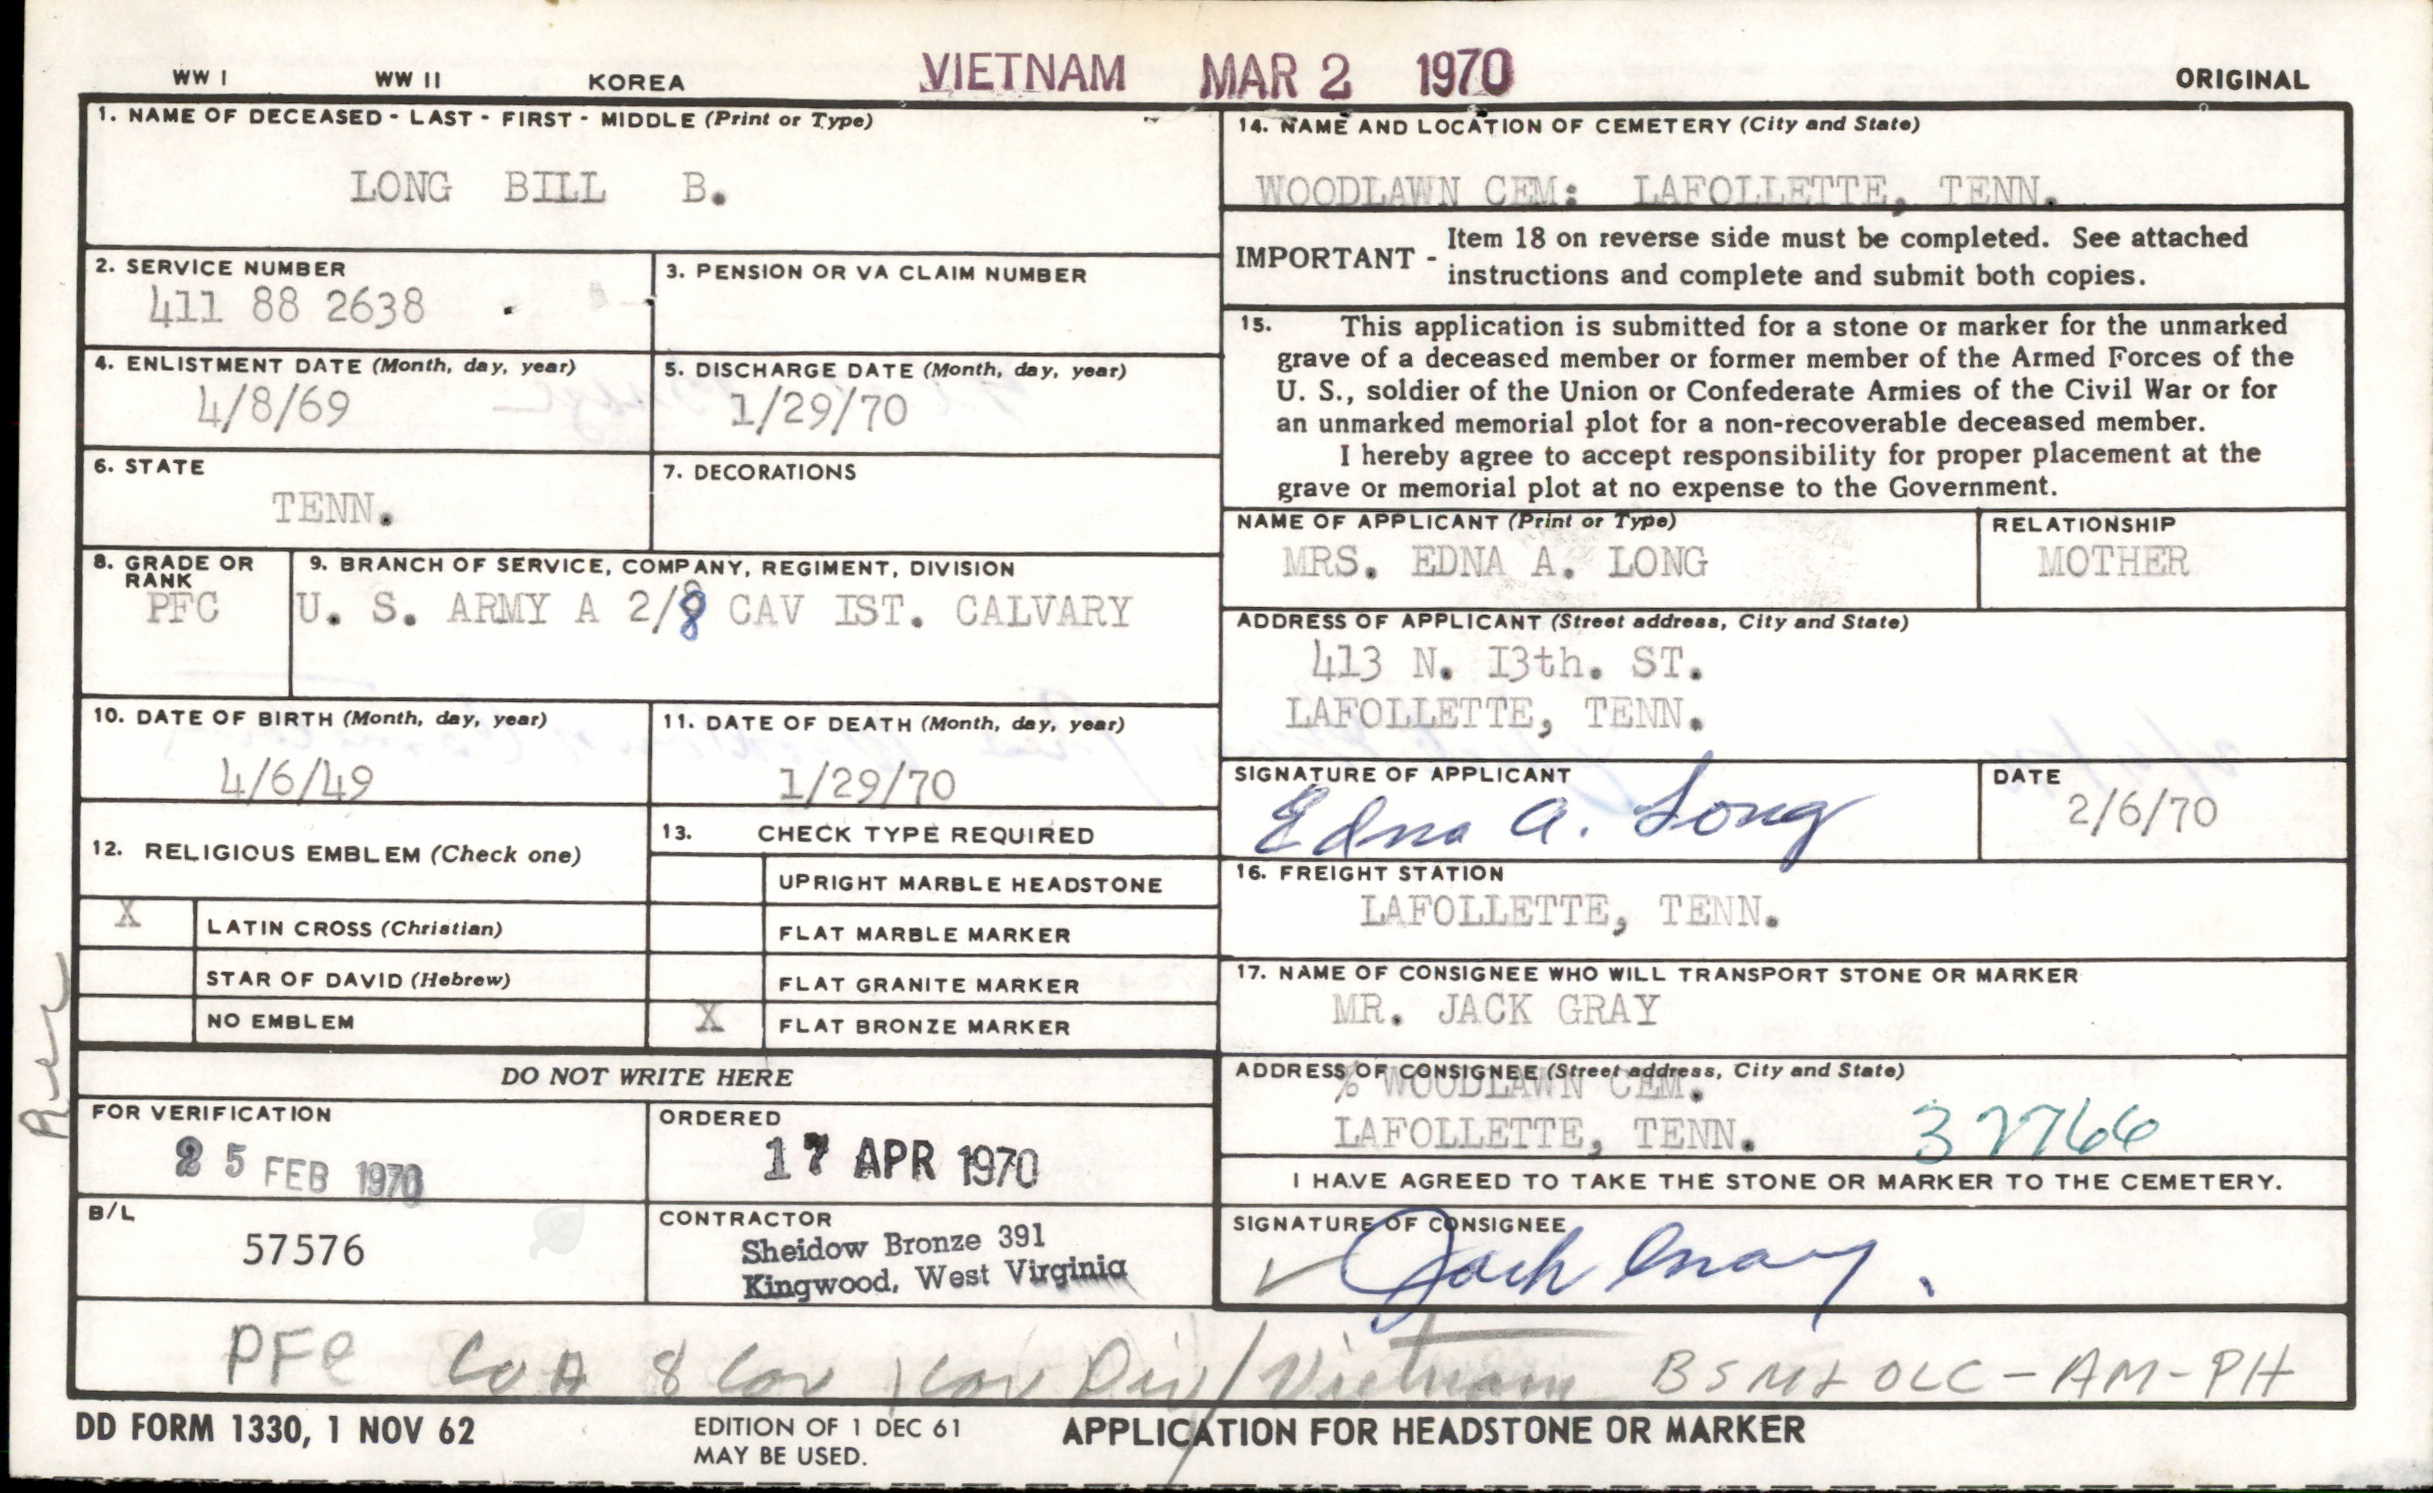 WW I WW II KOREA VIETNAM MAR 2 1970 ORIGINAL
1. NAME OF DECEASED - LAST - FIRST - MIDDLE (Print or Type)
LONG BILL B.
2. SERVICE NUMBER
411 88 2638
3. PENSION OR VA CLAIM NUMBER
4. ENLISTMENT DATE (Month, day, year)
4/8/69
5. DISCHARGE DATE (Month, day, year)
1/29/70
6. STATE
TENN.
7. DECORATIONS
8. GRADE OR
RANK
PFC
9. BRANCH OF SERVICE, COMPANY, REGIMENT, DIVISION
U. S. ARMY A 2/8 CAV IST. CALVARY
10. DATE OF BIRTH (Month, day, year)
4/6/49
11. DATE OF DEATH (Month, day, year)
1/29/70
12. RELIGIOUS EMBLEM (Check one)
X LATIN CROSS (Christian)
STAR OF DAVID (Hebrew)
NO EMBLEM
13. CHECK TYPE REQUIRED
UPRIGHT MARBLE HEADSTONE
FLAT MARBLE MARKER
FLAT GRANITE MARKER
X FLAT BRONZE MARKER
DO NOT WRITE HERE
FOR VERIFICATION
25 FEB 1970
ORDERED
17 APR 1970
B/L
57576
CONTRACTOR
Sheidow Bronze 391
Kingwood, West Virginia
14. NAME AND LOCATION OF CEMETERY (City and State)
WOODLAWN CEM: LAFOLLETTE, TENN.
IMPORTANT - Item 18 on reverse side must be completed. See attached
instructions and complete and submit both copies.
15. This application is submitted for a stone or marker for the unmarked
grave of a deceased member or former member of the Armed Forces of the
U. S., soldier of the Union or Confederate Armies of the Civil War or for
an unmarked memorial plot for a non-recoverable deceased member.
I hereby agree to accept responsibility for proper placement at the
grave or memorial plot at no expense to the Government.
NAME OF APPLICANT (Print or Type)
MRS. EDNA A. LONG
RELATIONSHIP
MOTHER
ADDRESS OF APPLICANT (Street address, City and State)
413 N. I3th. ST.
LAFOLLETTE, TENN.
SIGNATURE OF APPLICANT
Edna A. Long
DATE
2/6/70
16. FREIGHT STATION
LAFOLLETTE, TENN.
17. NAME OF CONSIGNEE WHO WILL TRANSPORT STONE OR MARKER
MR. JACK GRAY
ADDRESS OF CONSIGNEE (Street address, City and State)
% WOODLAWN CEM.
LAFOLLETTE, TENN. 37766
I HAVE AGREED TO TAKE THE STONE OR MARKER TO THE CEMETERY.
SIGNATURE OF CONSIGNEE
Jack Gray.
PFC Co A 8 Cav 1 Cav Div / Vietnam BSM & OLC - AM - PH
DD FORM 1330, 1 NOV 62
EDITION OF 1 DEC 61
MAY BE USED.
APPLICATION FOR HEADSTONE OR MARKER